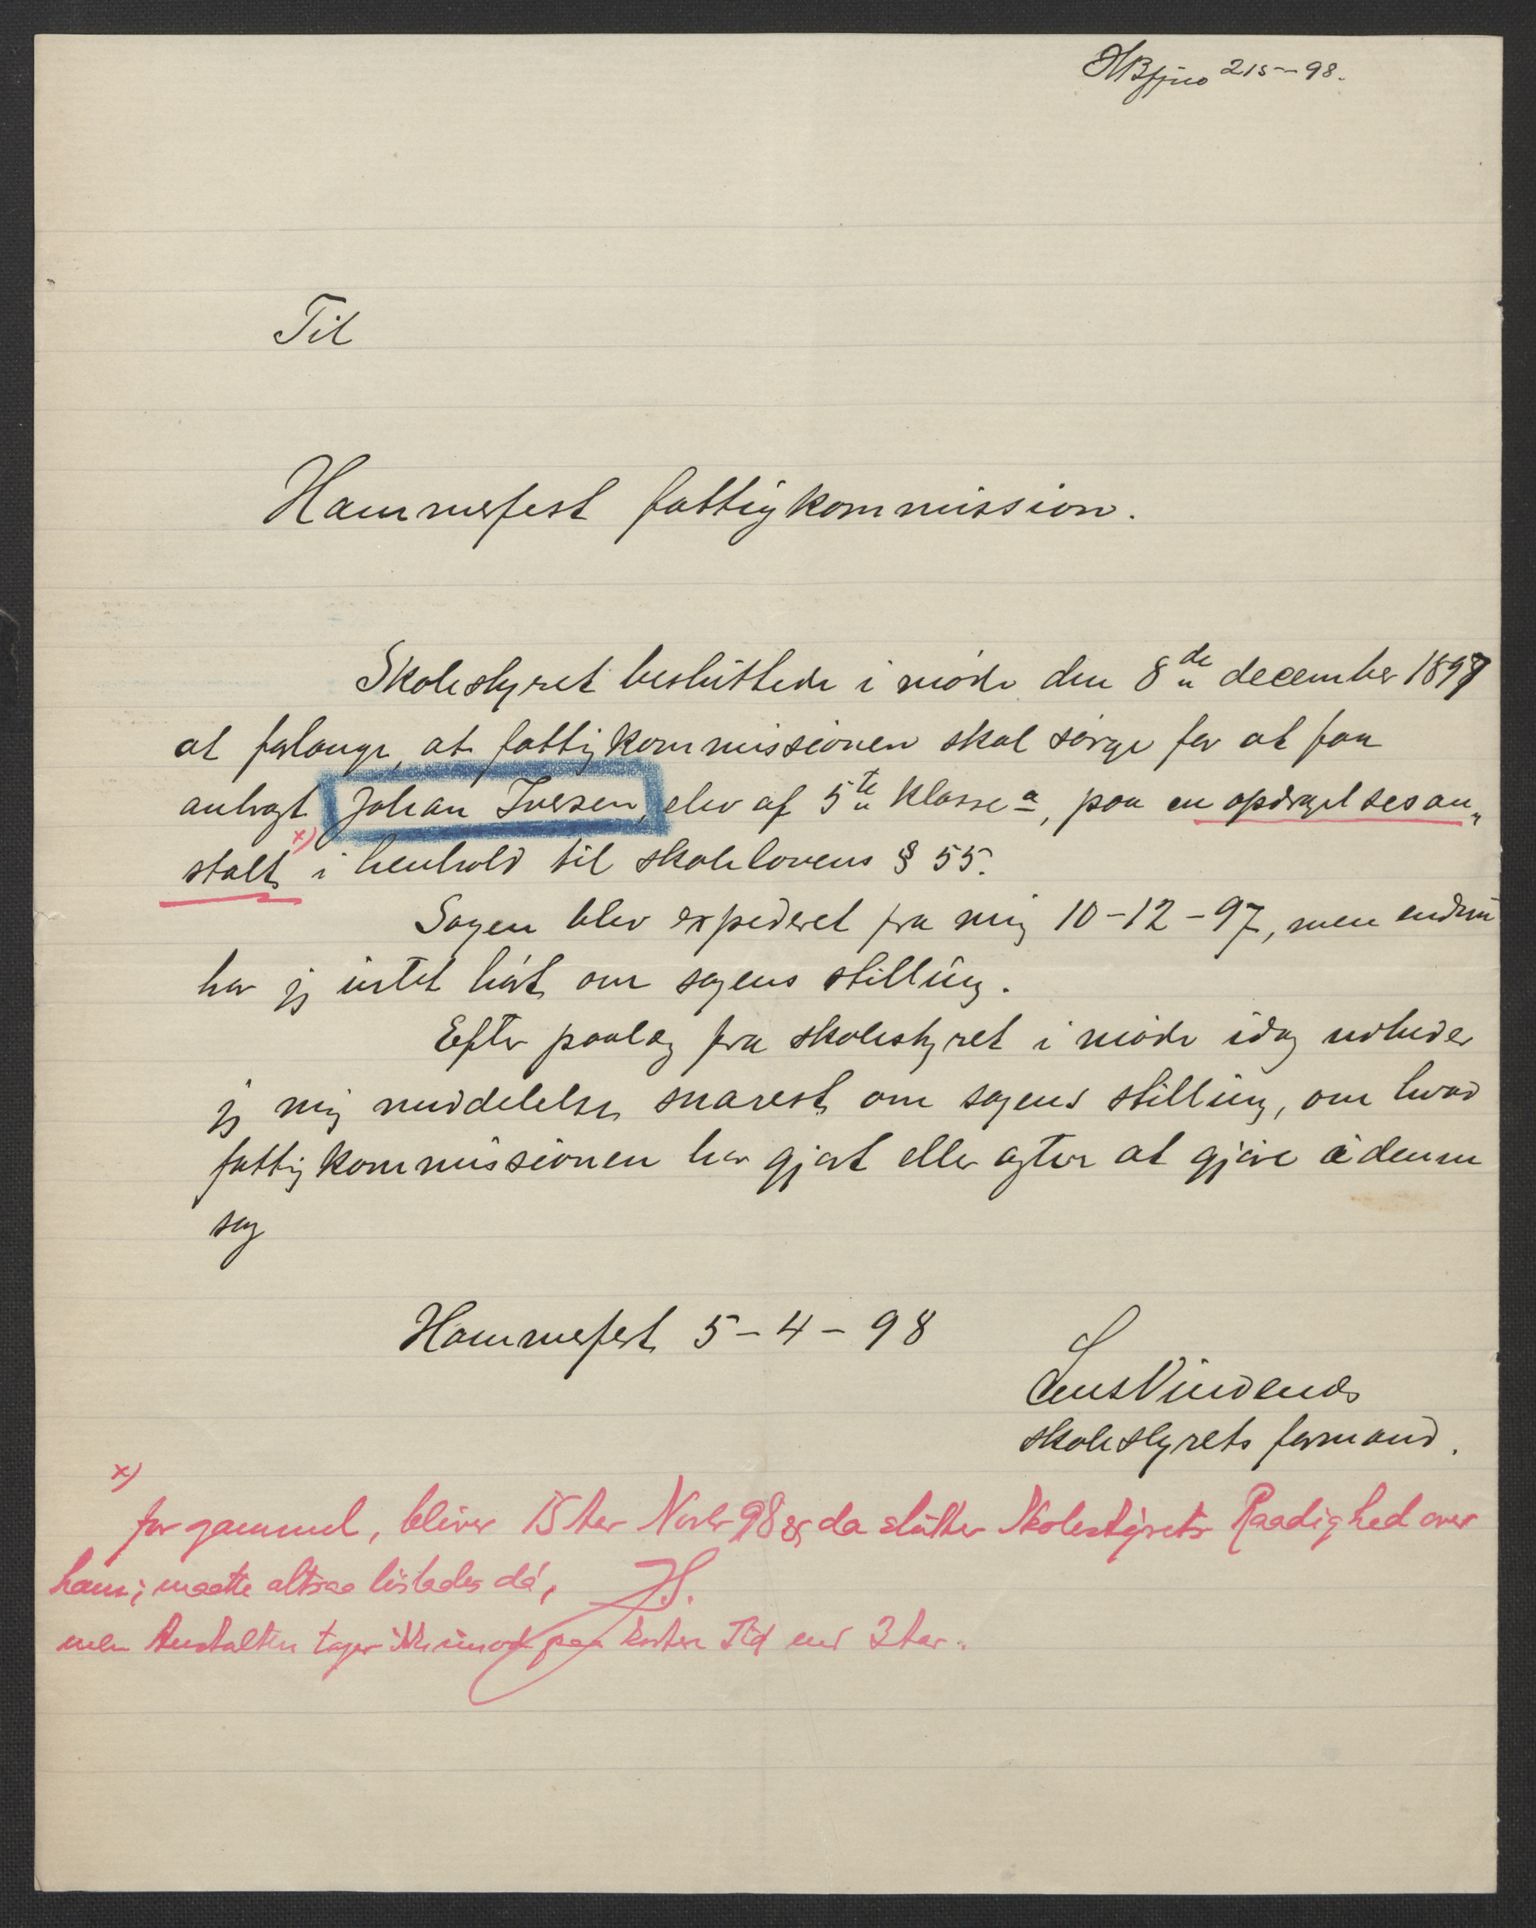 215-98.
Til
Hammerfest fattigkommission.
Skolestyret besluttede i møde den 8de december 1897
at forlange, at fattigkommissionen skal sørge for at faa
anbragt Johan Iversen, elev af 5te klasse a, paa en opdragelsesan„
stalt x) i henhold til skolelovens § 55.
Sagen blev expederet fra mig 10-12-97, men endnu
har jeg intet hørt om sagens stilling.
Efter paalæg fra skolestyret i møde idag udbeder
jeg mig meddelelse snarest om sagens stilling, om hvad
fattigkommissionen har gjort eller agter at gjøre i denne
sag
Hammerfest 5-4-98
skolestyrets formand.
x)
for gammel, bliver 15 Aar Novbr 98 og da slutter Skolestyrets Raadighed over
ham; maatte altsaa løslades da,
men Anstalten tager ikke imod paa kortere Tid end 2 Aar.